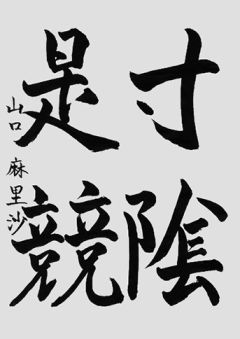 寸陰
是競
山口麻里沙